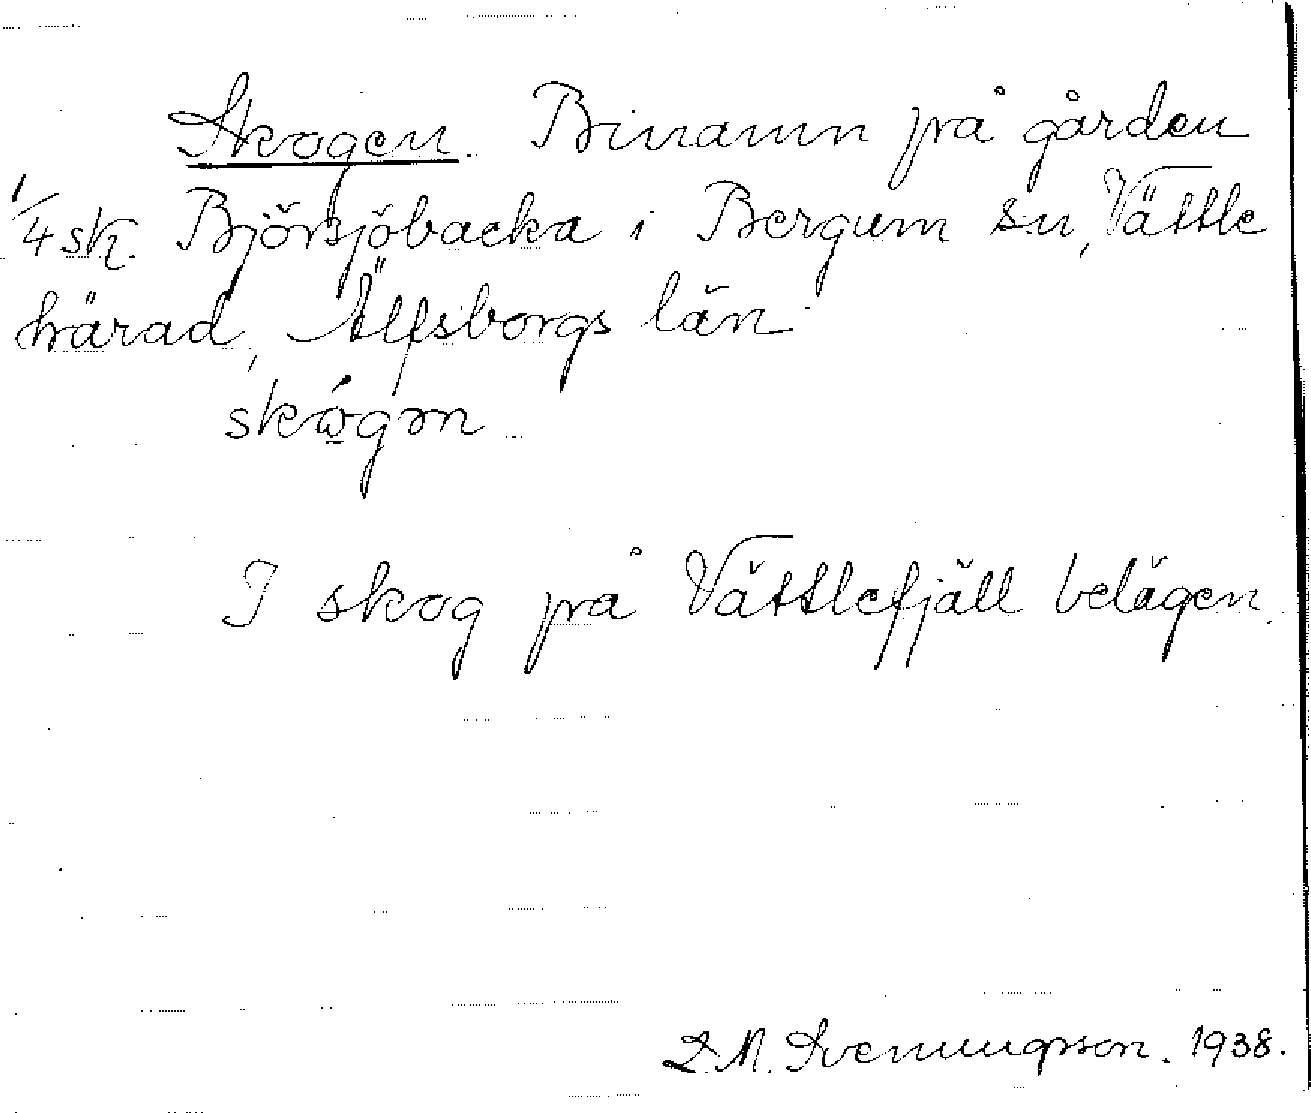 Skogen. Binamn på gården
1/4 sk. Björsjöbacka i Bergum sn, Vättle
härad, Älfsborgs län
skógən
I skog på Vättlefjäll belägen.
D. M. Svenungsson. 1938.